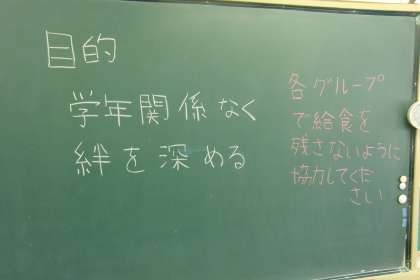 目的
学年関係なく
絆を深める
各グループ
で給食を
残さないように
協力してくだ
さい